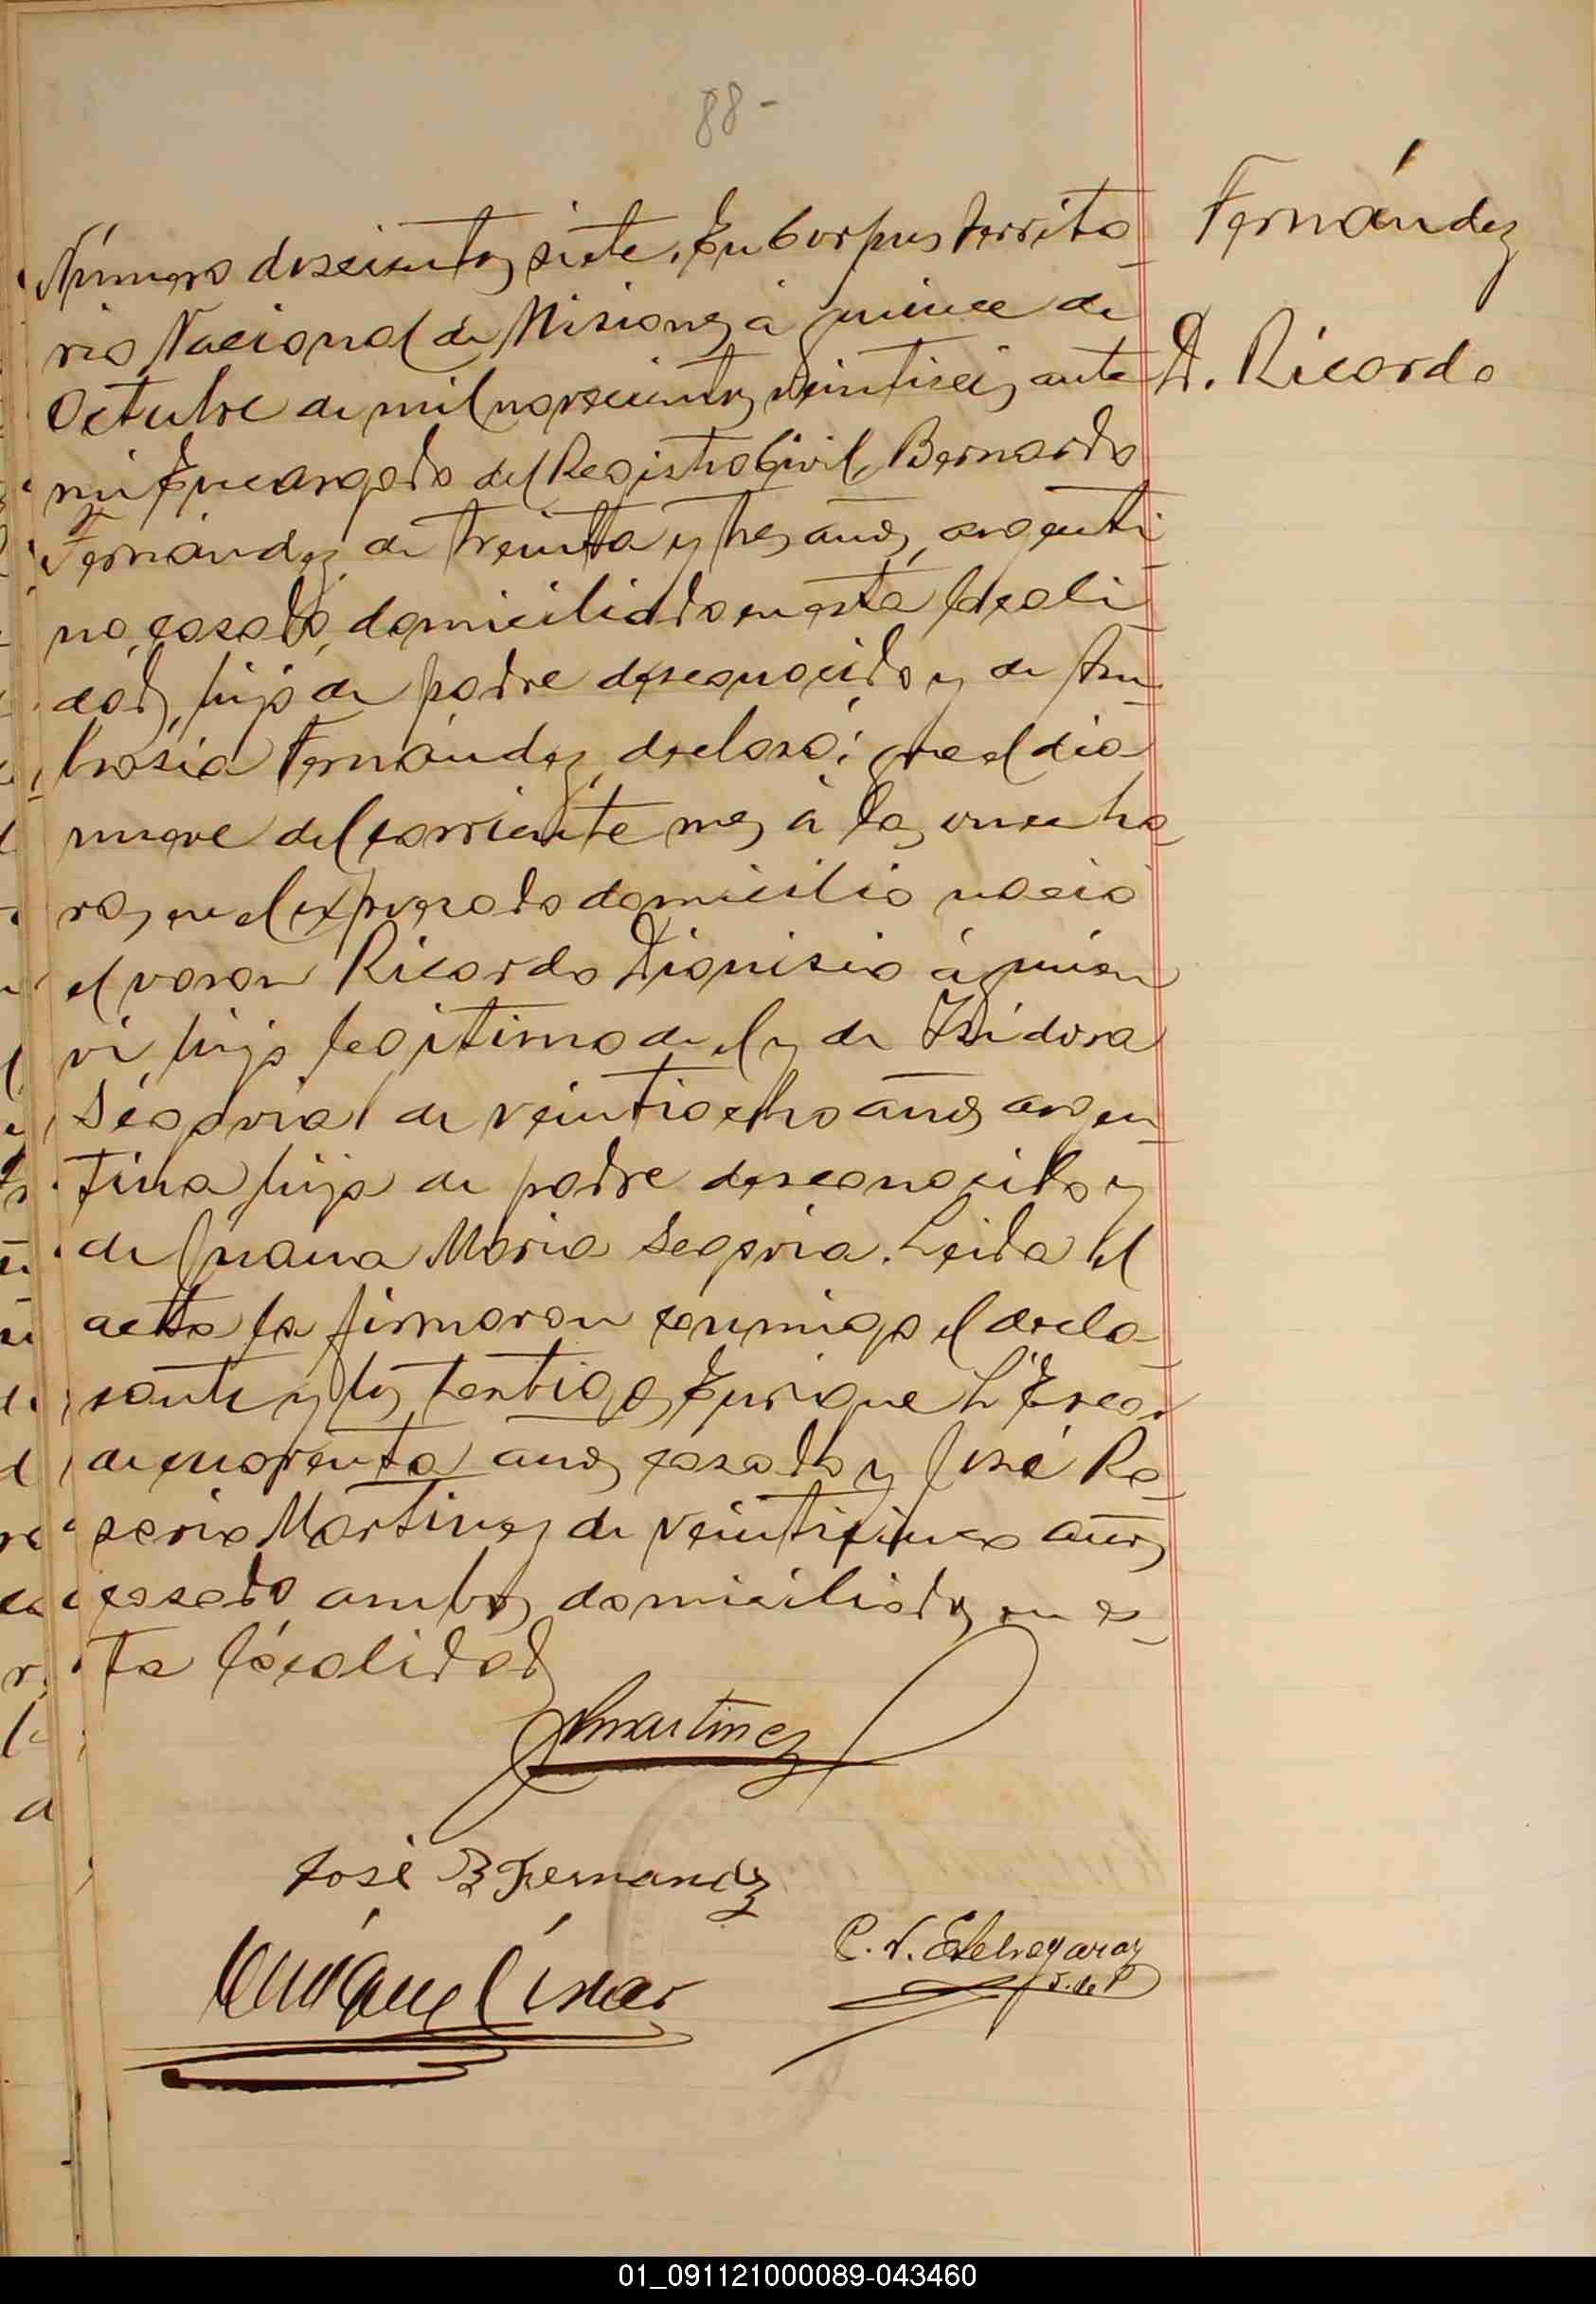 88-
Fernández
D. Ricardo
Número doscientos siete. En Corpus territo-
rio Nacional de Misiones á quince de
Octubre de mil novecientos veintiseis ante
mi Encargado del Registro Civil, Bernardo
Fernández de treinta y tres años, argenti-
no, casado, domiciliado en esta locali-
dad, hijo de padre desconocido y de Am-
brosia Fernández, declaró; que el dia
nueve del corriente mes á las once ho-
ras, en el expresado domicilio nació
el varon Ricardo Dionisio á quien
vi, hijo legitimo de el y de Isidora
Segovia de veintiocho años argen-
tina hija de padre desconocido y
de Juana Maria Segovia. Leida el
acta la firmaron conmigo el decla-
rante y los testigos Enrique L. Escar
de cuarenta años casado y José Ro-
serio Martinez de veinticinco años
casado ambos domiciliados en es-
ta localidad
Martinez
José B Fernandez
Enrique L Escar
C. N. Etchegaray
J. de P
01_091121000089-043460